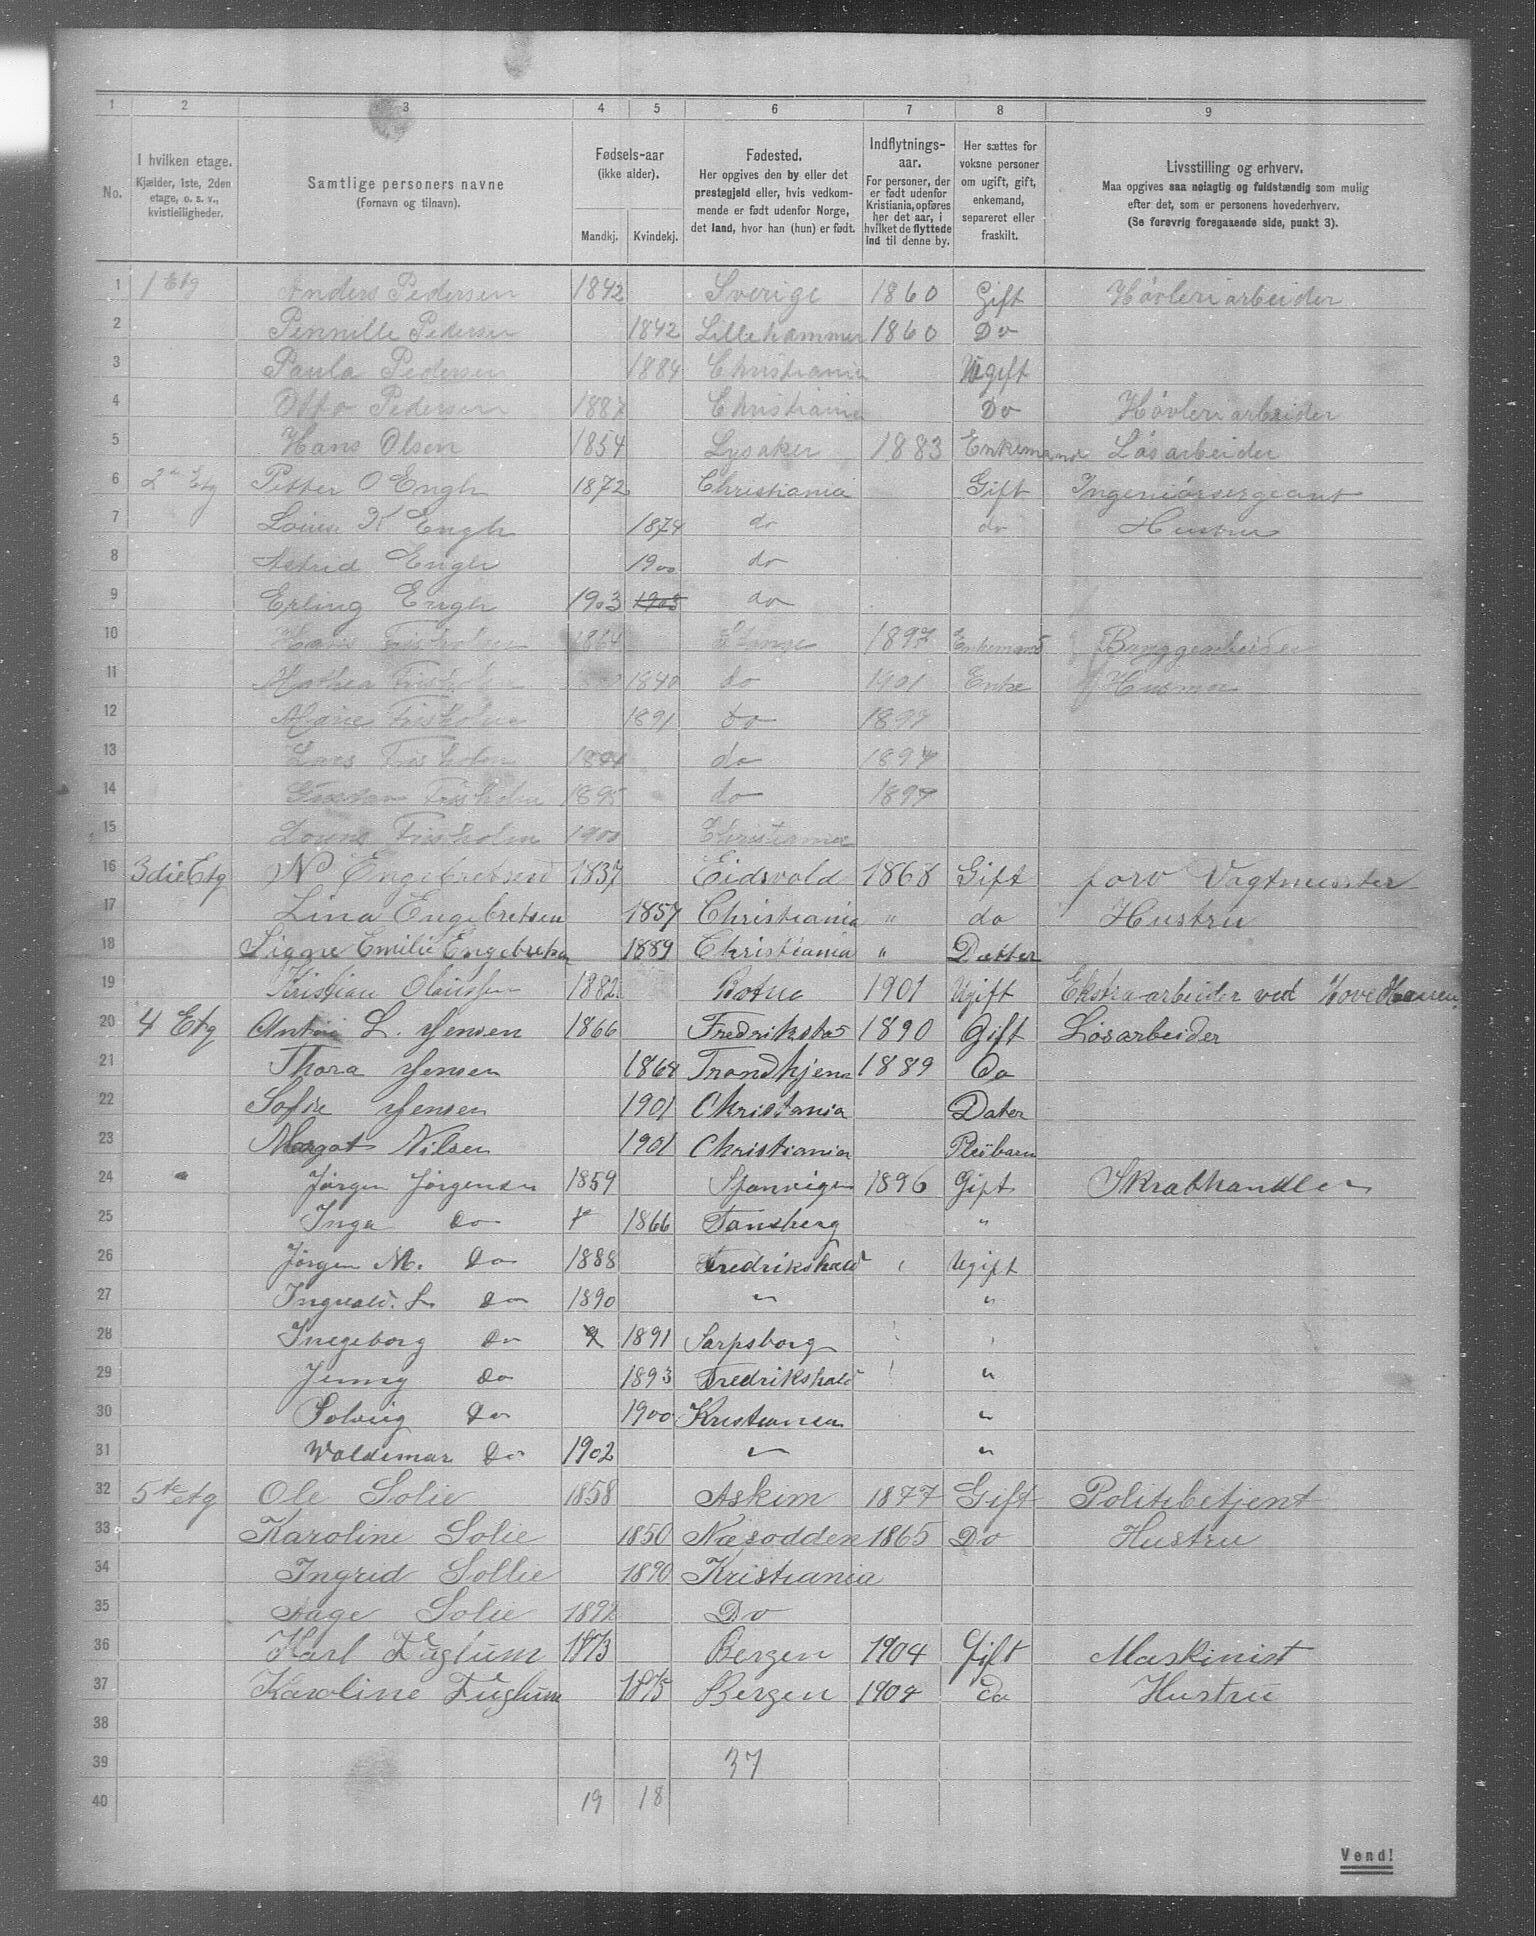 1 2 3 4 5 6 7 8 9
No.
I hvilken etage.
Kjælder, 1ste, 2den
etage, o. s. v.,
kvistleiligheder.
Samtlige personers navne
(Fornavn og tilnavn).
Fødsels-aar
(ikke alder).
Mandkj. Kvindekj.
Fødested.
Her opgives den by eller det
prestegjeld eller, hvis vedkom-
mende er født udenfor Norge,
det land, hvor han (hun) er født.
Indflytnings-
aar.
For personer, der
er født udenfor
Kristiania, opføres
her det aar, i
hvilket de flyttede
ind til denne by.
Her sættes for
voksne personer
om ugift, gift,
enkemand,
separeret eller
fraskilt.
Livsstilling og erhverv.
Maa opgives saa nøiagtig og fuldstændig som mulig
efter det, som er personens hovederhverv.
(Se forøvrig foregaaende side, punkt 3).
1 1 Etg Anders Pedersen 1842 Sverige 1860 Gift Høvleriarbeider
2 Pernille Pedersen 1842 Lillehammer 1860 Do
3 Paula Pedersen 1884 Christiania Ugift
4 Otto Pedersen 1887 Christiania Do Høvleriarbeider
5 Hans Olsen 1854 Lysaker 1883 Enkemand Løsarbeider
6 2 Etg Petter O Engh 1872 Christiania Gift Ingeniørsergeant
7 Louise K Engh 1874 do do Hustru
8 Astrid Engh 1900 do
9 Erling Engh 1903 1903 do
10 Hans Frisholm 1864 Stange 1897 Enkemand Bryggearbeider
11 Mathea Frisholm 1840 do 1901 Enke Husmor
12 Marie Frisholm 1891 do 1897
13 Lars Frisholm 1894 do 1897
14 Frisholm 1895 do 1897
15 Frisholm 1900 Christiania
16 3die Etg N Engebretsen 1837 Eidsvold 1868 Gift forv Vagtmester
17 Lina Engebretsen 1857 Christiania " do Hustru
18 Signe Emilie Engebretsen 1889 Christiania " Datter
19 Kristian Olaussen 1882 Botne 1901 Ugift Ekstraarbeider ved
20 4 Etg Anton L. Jensen 1866 Fredrikstad 1890 Gift Løsarbeider
21 Thora Jensen 1864 Trondhjem 1889 Do
22 Sofie Jensen 1901 Christania Dater
23 Margot Nilsen 1901 Christiania Pleibarn
24 Jørgen Jørgensen 1859 1896 Gift Skrabhandler
25 Inga Do 1866 Tønsberg "
26 Jørgen M. Do 1888 Fredrikshald Ugift
27 Ingvald. L Do 1890 " "
28 Inegeborg Do 1891 Sarpsborg
29 Jenny Do 1893 Fredrikshald "
30 Solveig Do 1900 Kristiania "
31 Waldemar Do 1902 " "
32 5te etg Ole Solie 1858 Askim 1877 Gift Politibetjent
33 Karoline Solie 1850 Næsodden 1865 Do Hustru
34 Ingrid Sollie 1890 Kristiania
35 Aage Solie 1892 Do
36 Karl Füglum 1873 Bergen 1904 Gift Maskinist
37 Karoline Füglum 1875 Bergen 1904 do Hustru
38
39 37
40 19 18
Vend!